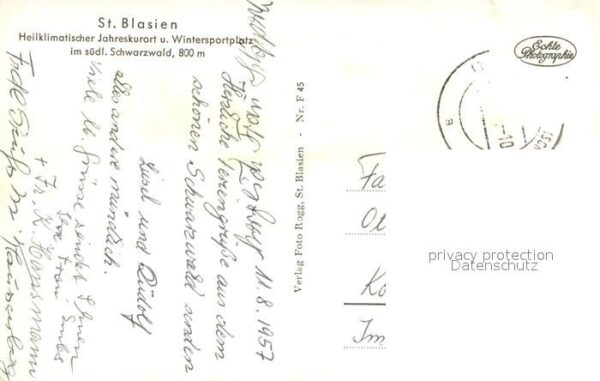 St. Blasien
Heilklimatischer Jahreskurort u. Wintersportplatz
im südl. Schwarzwald, 800 m
11.8.1957
Herzliche Feriengrüße aus dem
schönen Schwarzwald senden
Liesl und Rudolf
alles andere mündlich.
Viele Grüsse sendet Ihnen
Frau
+ Fr. K. Hansmann
Frohe Grüße
Verlag Foto Rogg, St. Blasien - Nr. F 45
Echte
Photographie
a
-10
Fa
Ot
Ko
Im
privacy protection
Datenschutz